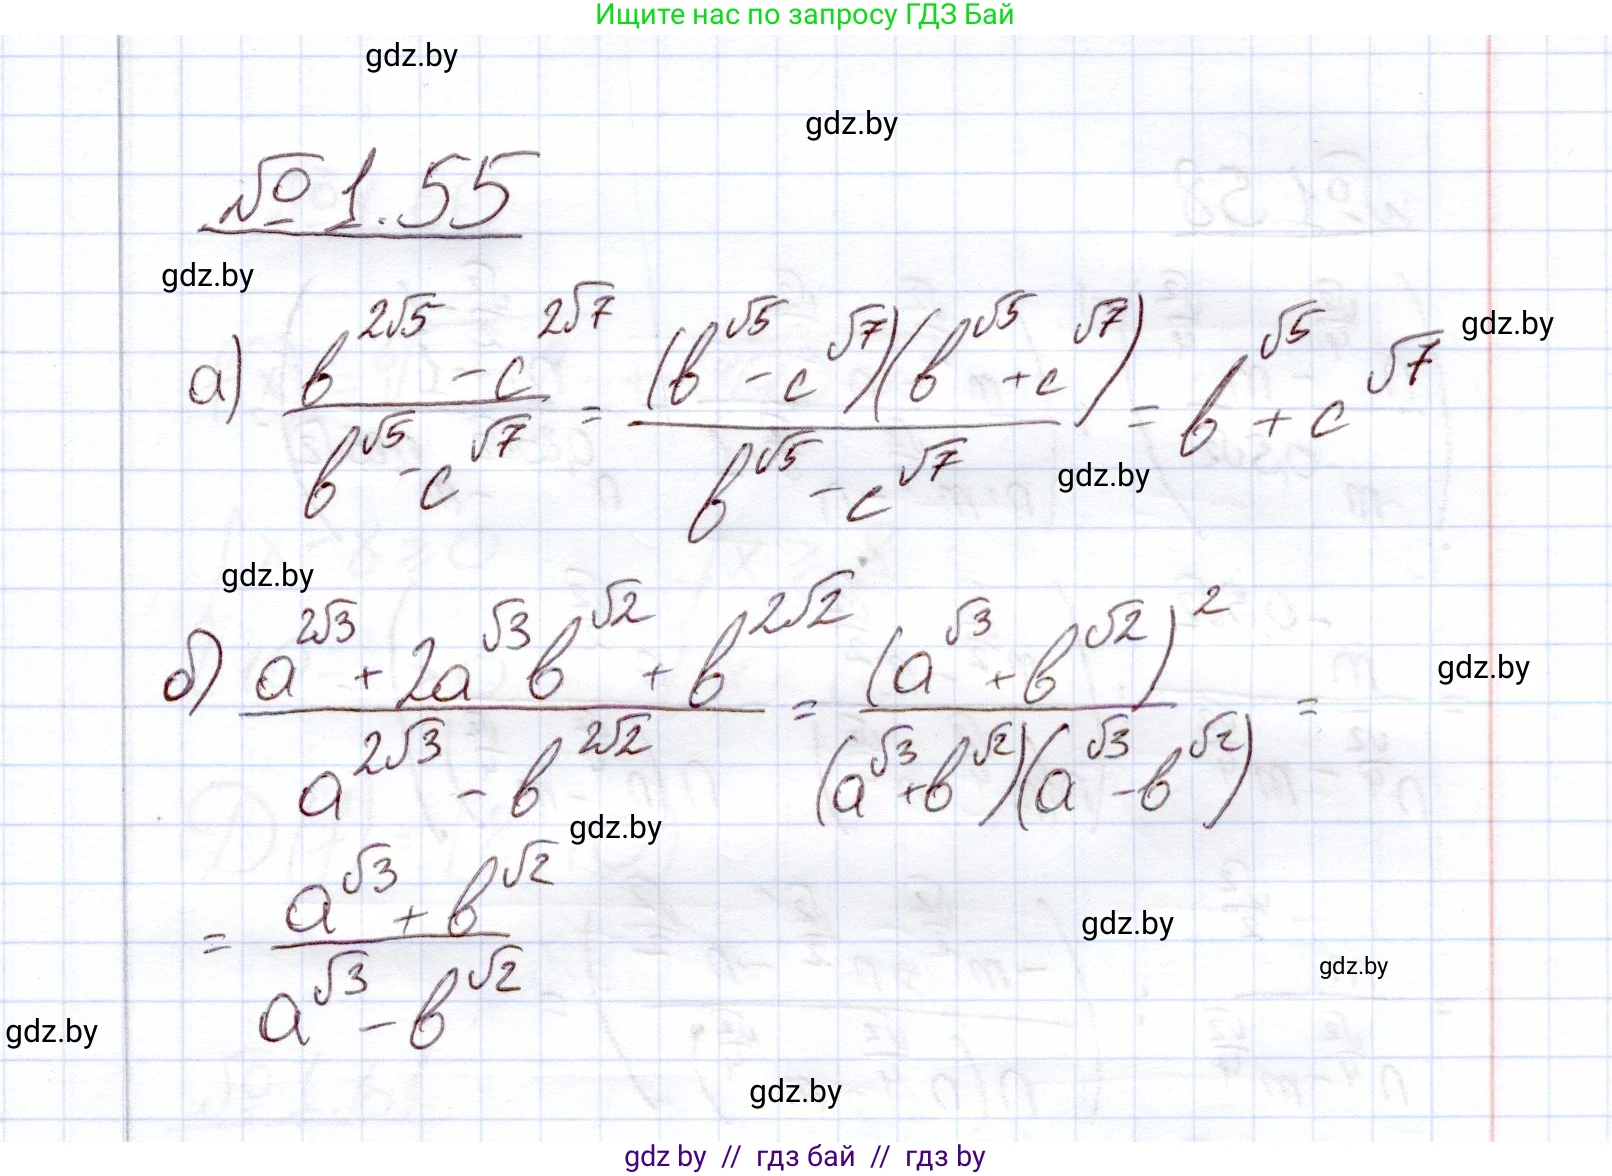 Ищите нас по запросу ГДЗ Бай
gdz.by
gdz.by
№ 1.55
gdz.by
а) \frac{b^{2√5} - c^{2√7}}{b^{√5} - c^{√7}} = \frac{(b^{√5} - c^{√7})(b^{√5} + c^{√7})}{b^{√5} - c^{√7}} = b^{√5} + c^{√7}
gdz.by
gdz.by
gdz.by
б) \frac{a^{2√3} + 2a^{√3}b^{√2} + b^{2√2}}{a^{2√3} - b^{2√2}} = \frac{(a^{√3} + b^{√2})^2}{(a^{√3} + b^{√2})(a^{√3} - b^{√2})} =
gdz.by
gdz.by
= \frac{a^{√3} + b^{√2}}{a^{√3} - b^{√2}}
gdz.by
gdz.by
gdz.by
gdz.by
gdz by // гдз бай // гдз by